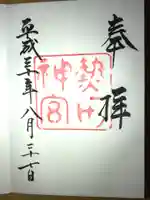 奉拝
熱田
神宮
平成三十年八月二十七日